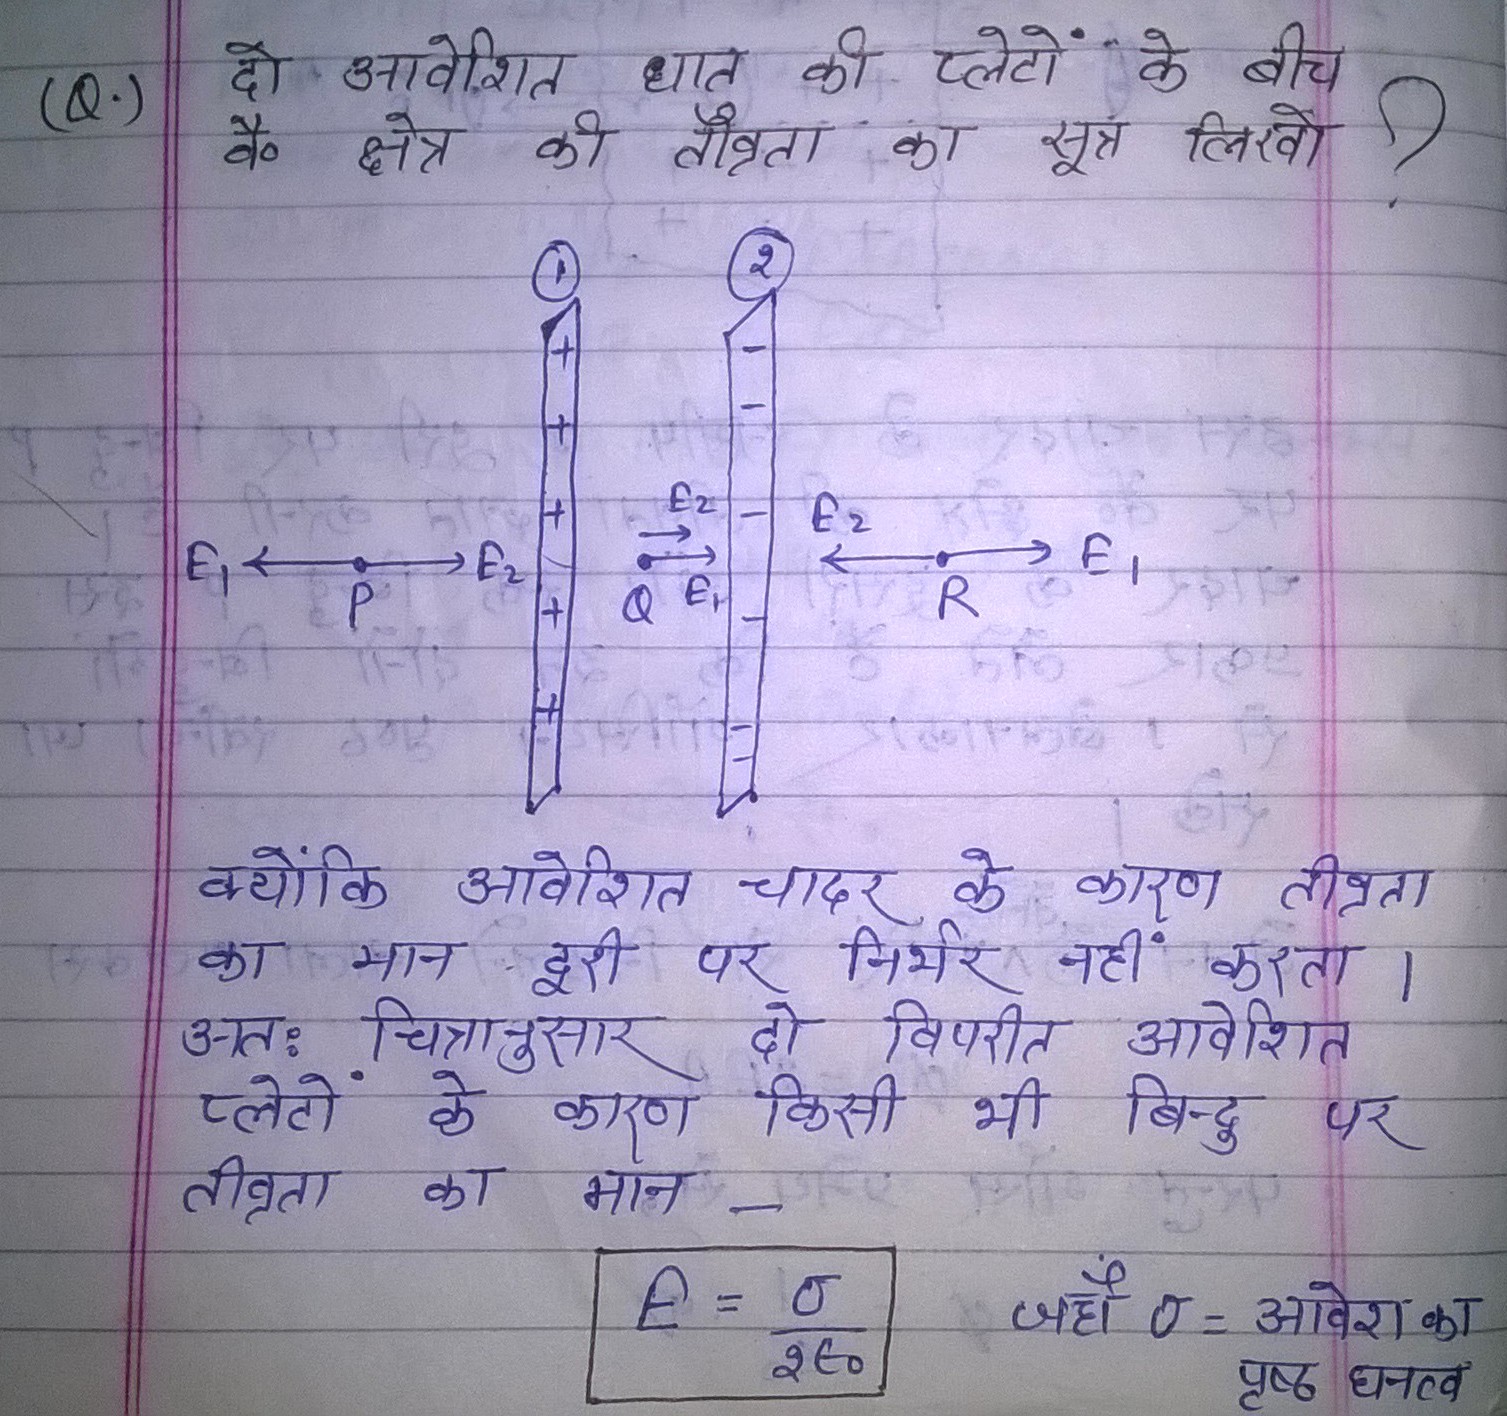 (Q.) दो आवेशित धात की प्लेटों के बीच
वै० क्षेत्र की तीव्रता का सूत्र लिखो ?
१ २
+ -
+ -
+ -
E₂ E₂
E₁ E₂ E₁
P Q E₁ R
+ -
+ -
-
क्योंकि आवेशित चादर के कारण तीव्रता
का मान दूरी पर निर्भर नहीं करता ।
अतः चित्रानुसार दो विपरीत आवेशित
प्लेटों के कारण किसी भी बिन्दु पर
तीव्रता का मान –
E = σ/२ε₀ जहाँ σ = आवेश का
पृष्ठ घनत्व